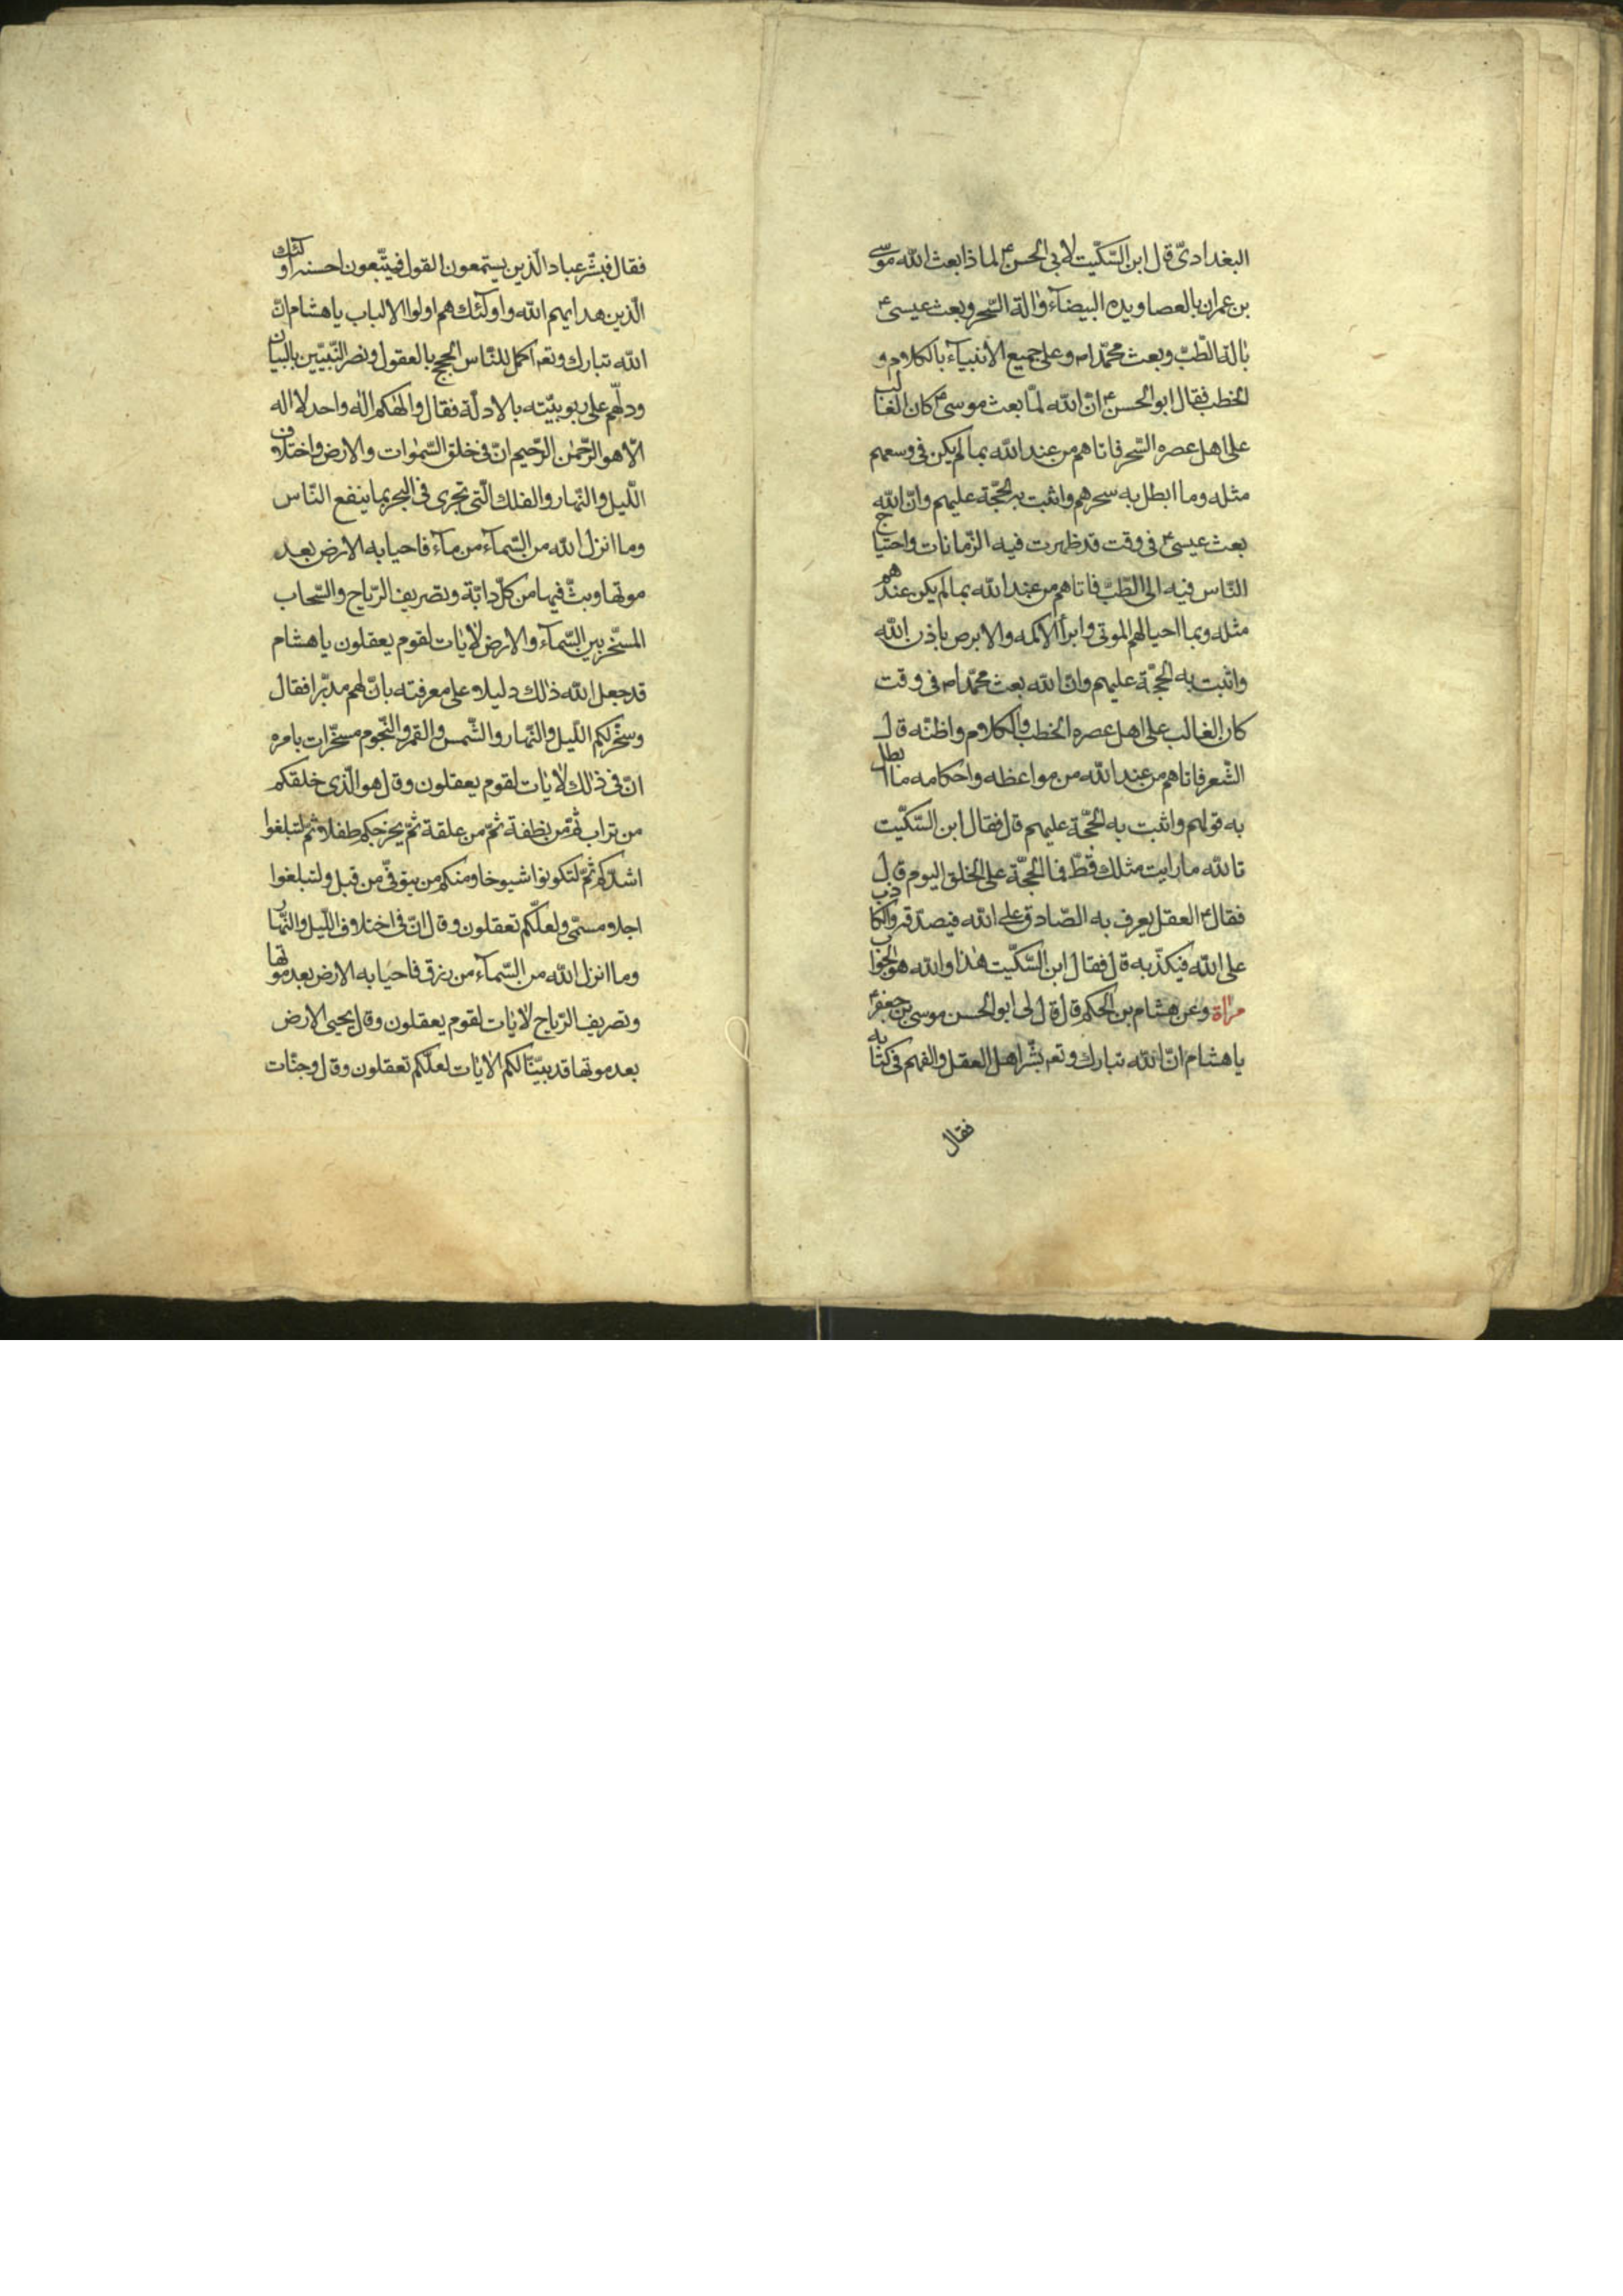 البغدادىّ قال ابن السّكّيت لابى الحسن ع لماذا بعث الله موسى
بن عمران بالعصا ويده البيضآء وآلة السّحر وبعث عيسى ع
بآلة الطّبّ وبعث محمّدا ص وعلى جميع الانبيآء بالكلام و
الخطب فقال ابو الحسن ع انّ الله لمّا بعث موسى ع كان الغالب
على اهل عصره السّحر فاتاهم من عند الله بما لم يكن فى وسعهم
مثله وما ابطل به سحرهم واثبت به الحجّة عليهم وانّ الله
بعث عيسى ع فى وقت قد ظهرت فيه الزّمانات واحتياج
النّاس فيه الى الطّبّ فاتاهم من عند الله بما لم يكن عندهم
مثله وبما احيا لهم الموتى وابرأ الاكمه والابرص باذن الله
واثبت به الحجّة عليهم وانّ الله بعث محمّدا ص فى وقت
كان الغالب على اهل عصره الخطب والكلام واظنّه قال
الشّعر فاتاهم من عند الله من مواعظه واحكامه ما ابطل
به قولهم واثبت به الحجّة عليهم قال فقال ابن السّكّيت
تالله ما رايت مثلك قطّ فما الحجّة على الخلق اليوم قال
فقال ع العقل يعرف به الصّادق على الله فيصدّقه والكاذب
على الله فيكذّبه قال فقال ابن السّكّيت هذا والله هو الجواب
مرآة وعن هشام بن الحكم قال قال لى ابو الحسن موسى بن جعفر ع
يا هشام انّ الله تبارك وتعـ بشّر اهل العقل والفهم فى كتابه
فقال
فقال فبشّر عباد الّذين يستمعون القول فيتّبعون احسنه اولئك
الّذين هدايهم الله واولئك هم اولوا الالباب يا هشام انّ
الله تبارك وتعـ اكمل للنّاس الحجج بالعقول ونصر النّبيّين بالبيان
ودلّهم على ربوبيّته بالادلّة فقال والهكم اله واحد لا اله
الّا هو الرّحمن الرّحيم انّ فى خلق السّموات والارض واختلاف
اللّيل والنّهار والفلك الّتى تجرى فى البحر بما ينفع النّاس
وما انزل الله من السّمآء من مآء فاحيا به الارض بعد
موتها وبثّ فيها من كلّ دابّة وتصريف الرّياح والسّحاب
المسخّر بين السّمآء والارض لآيات لقوم يعقلون يا هشام
قد جعل الله ذلك دليلا على معرفته بانّ لهم مدبّرا فقال
وسخّر لكم اللّيل والنّهار والشّمس والقمر والنّجوم مسخّرات بامره
انّ فى ذلك لآيات لقوم يعقلون وقال هو الّذى خلقكم
من تراب ثمّ من نطفة ثمّ من علقة ثمّ يخرجكم طفلا ثمّ لتبلغوا
اشدّكم ثمّ لتكونوا شيوخا ومنكم من يتوفّى من قبل ولتبلغوا
اجلا مسمّى ولعلّكم تعقلون وقال انّ فى اختلاف اللّيل والنّهار
وما انزل الله من السّمآء من رزق فاحيا به الارض بعد موتها
وتصريف الرّياح لآيات لقوم يعقلون وقال يحيى الارض
بعد موتها قد بيّنّا لكم الآيات لعلّكم تعقلون وقال وجنّات